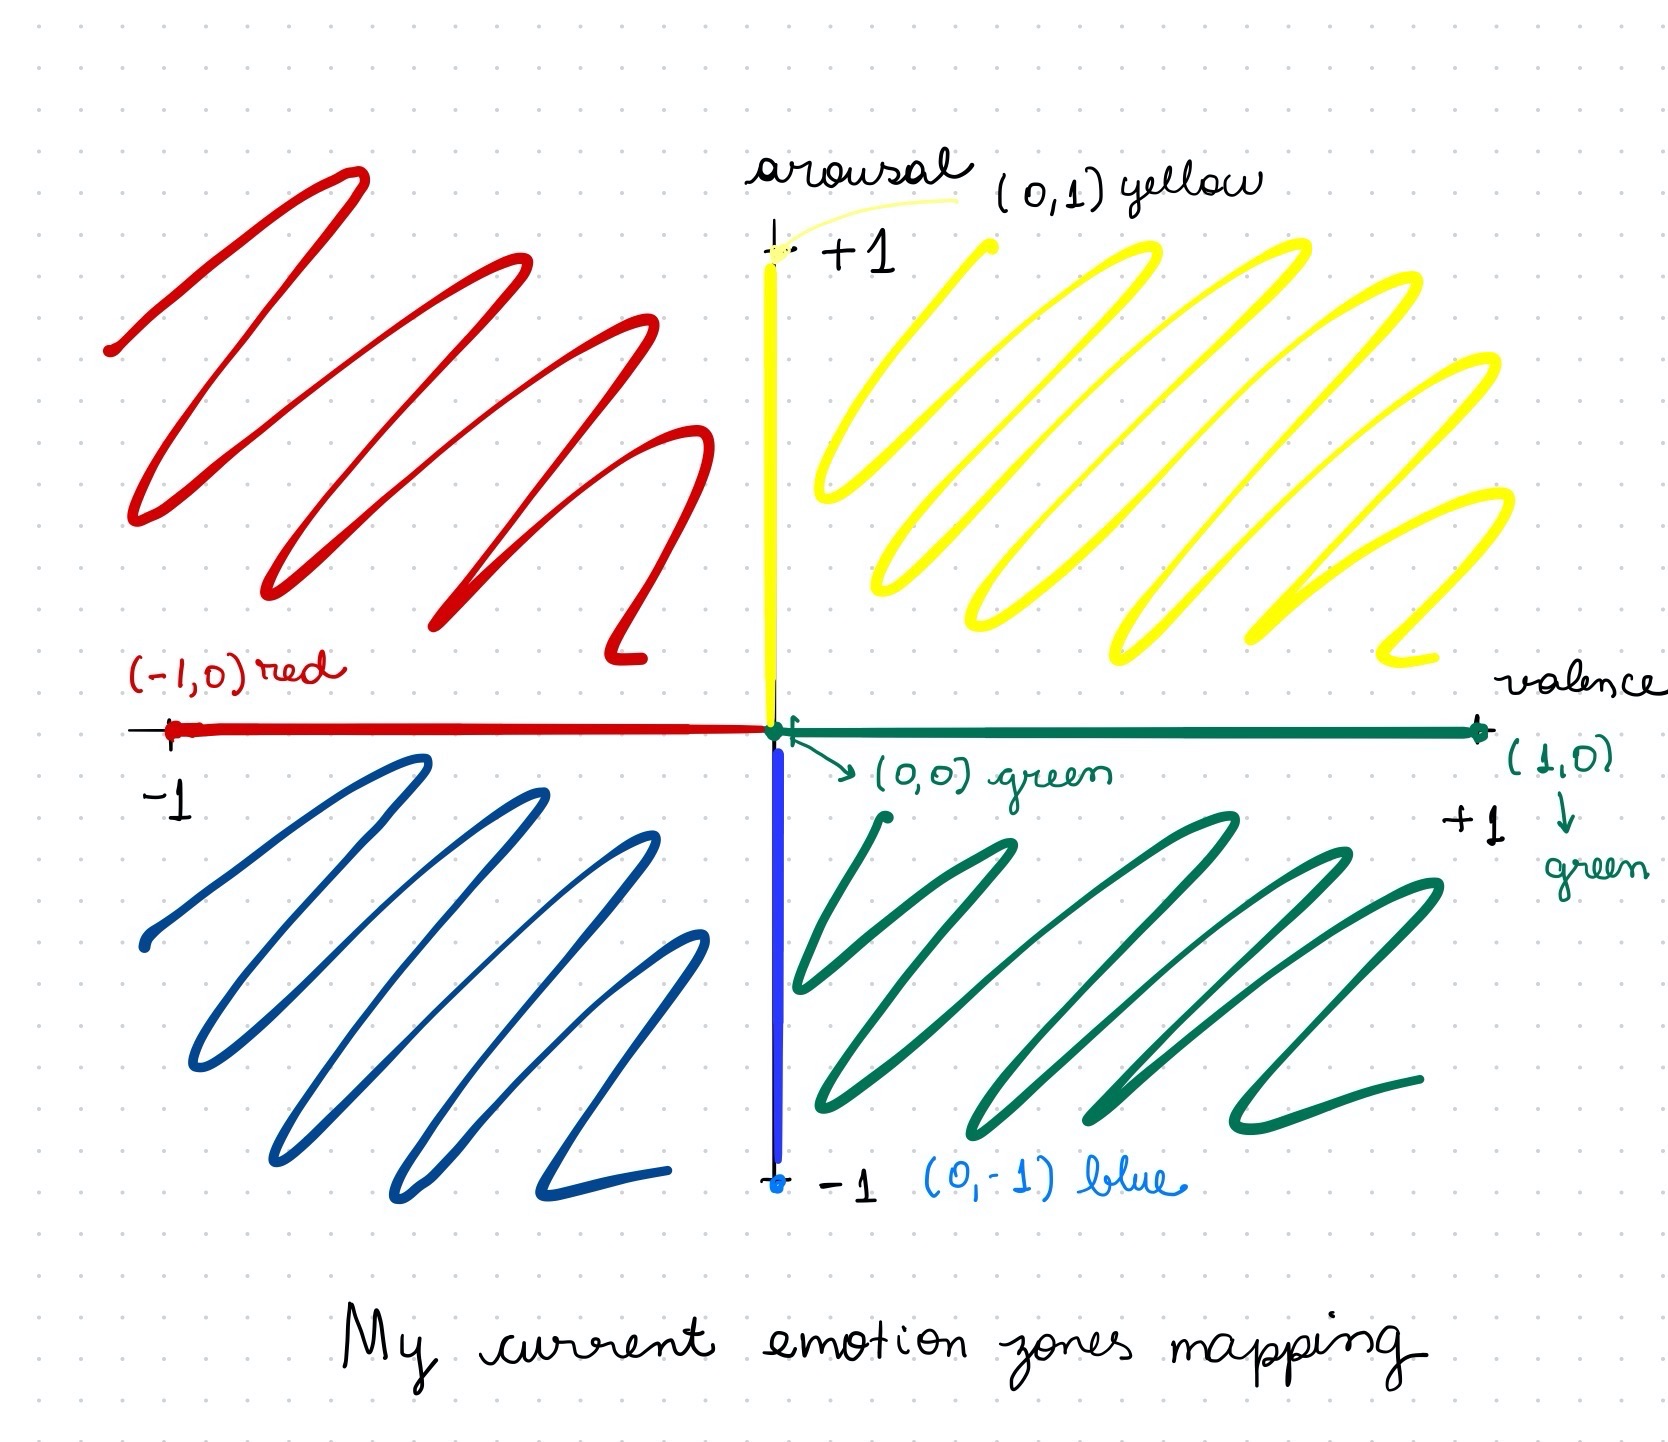 arousal
(0,1) yellow
+1
(-1,0) red
valence
-1
(0,0) green
(1,0)
+1
green
-1
(0,-1) blue
My current emotion zones mapping